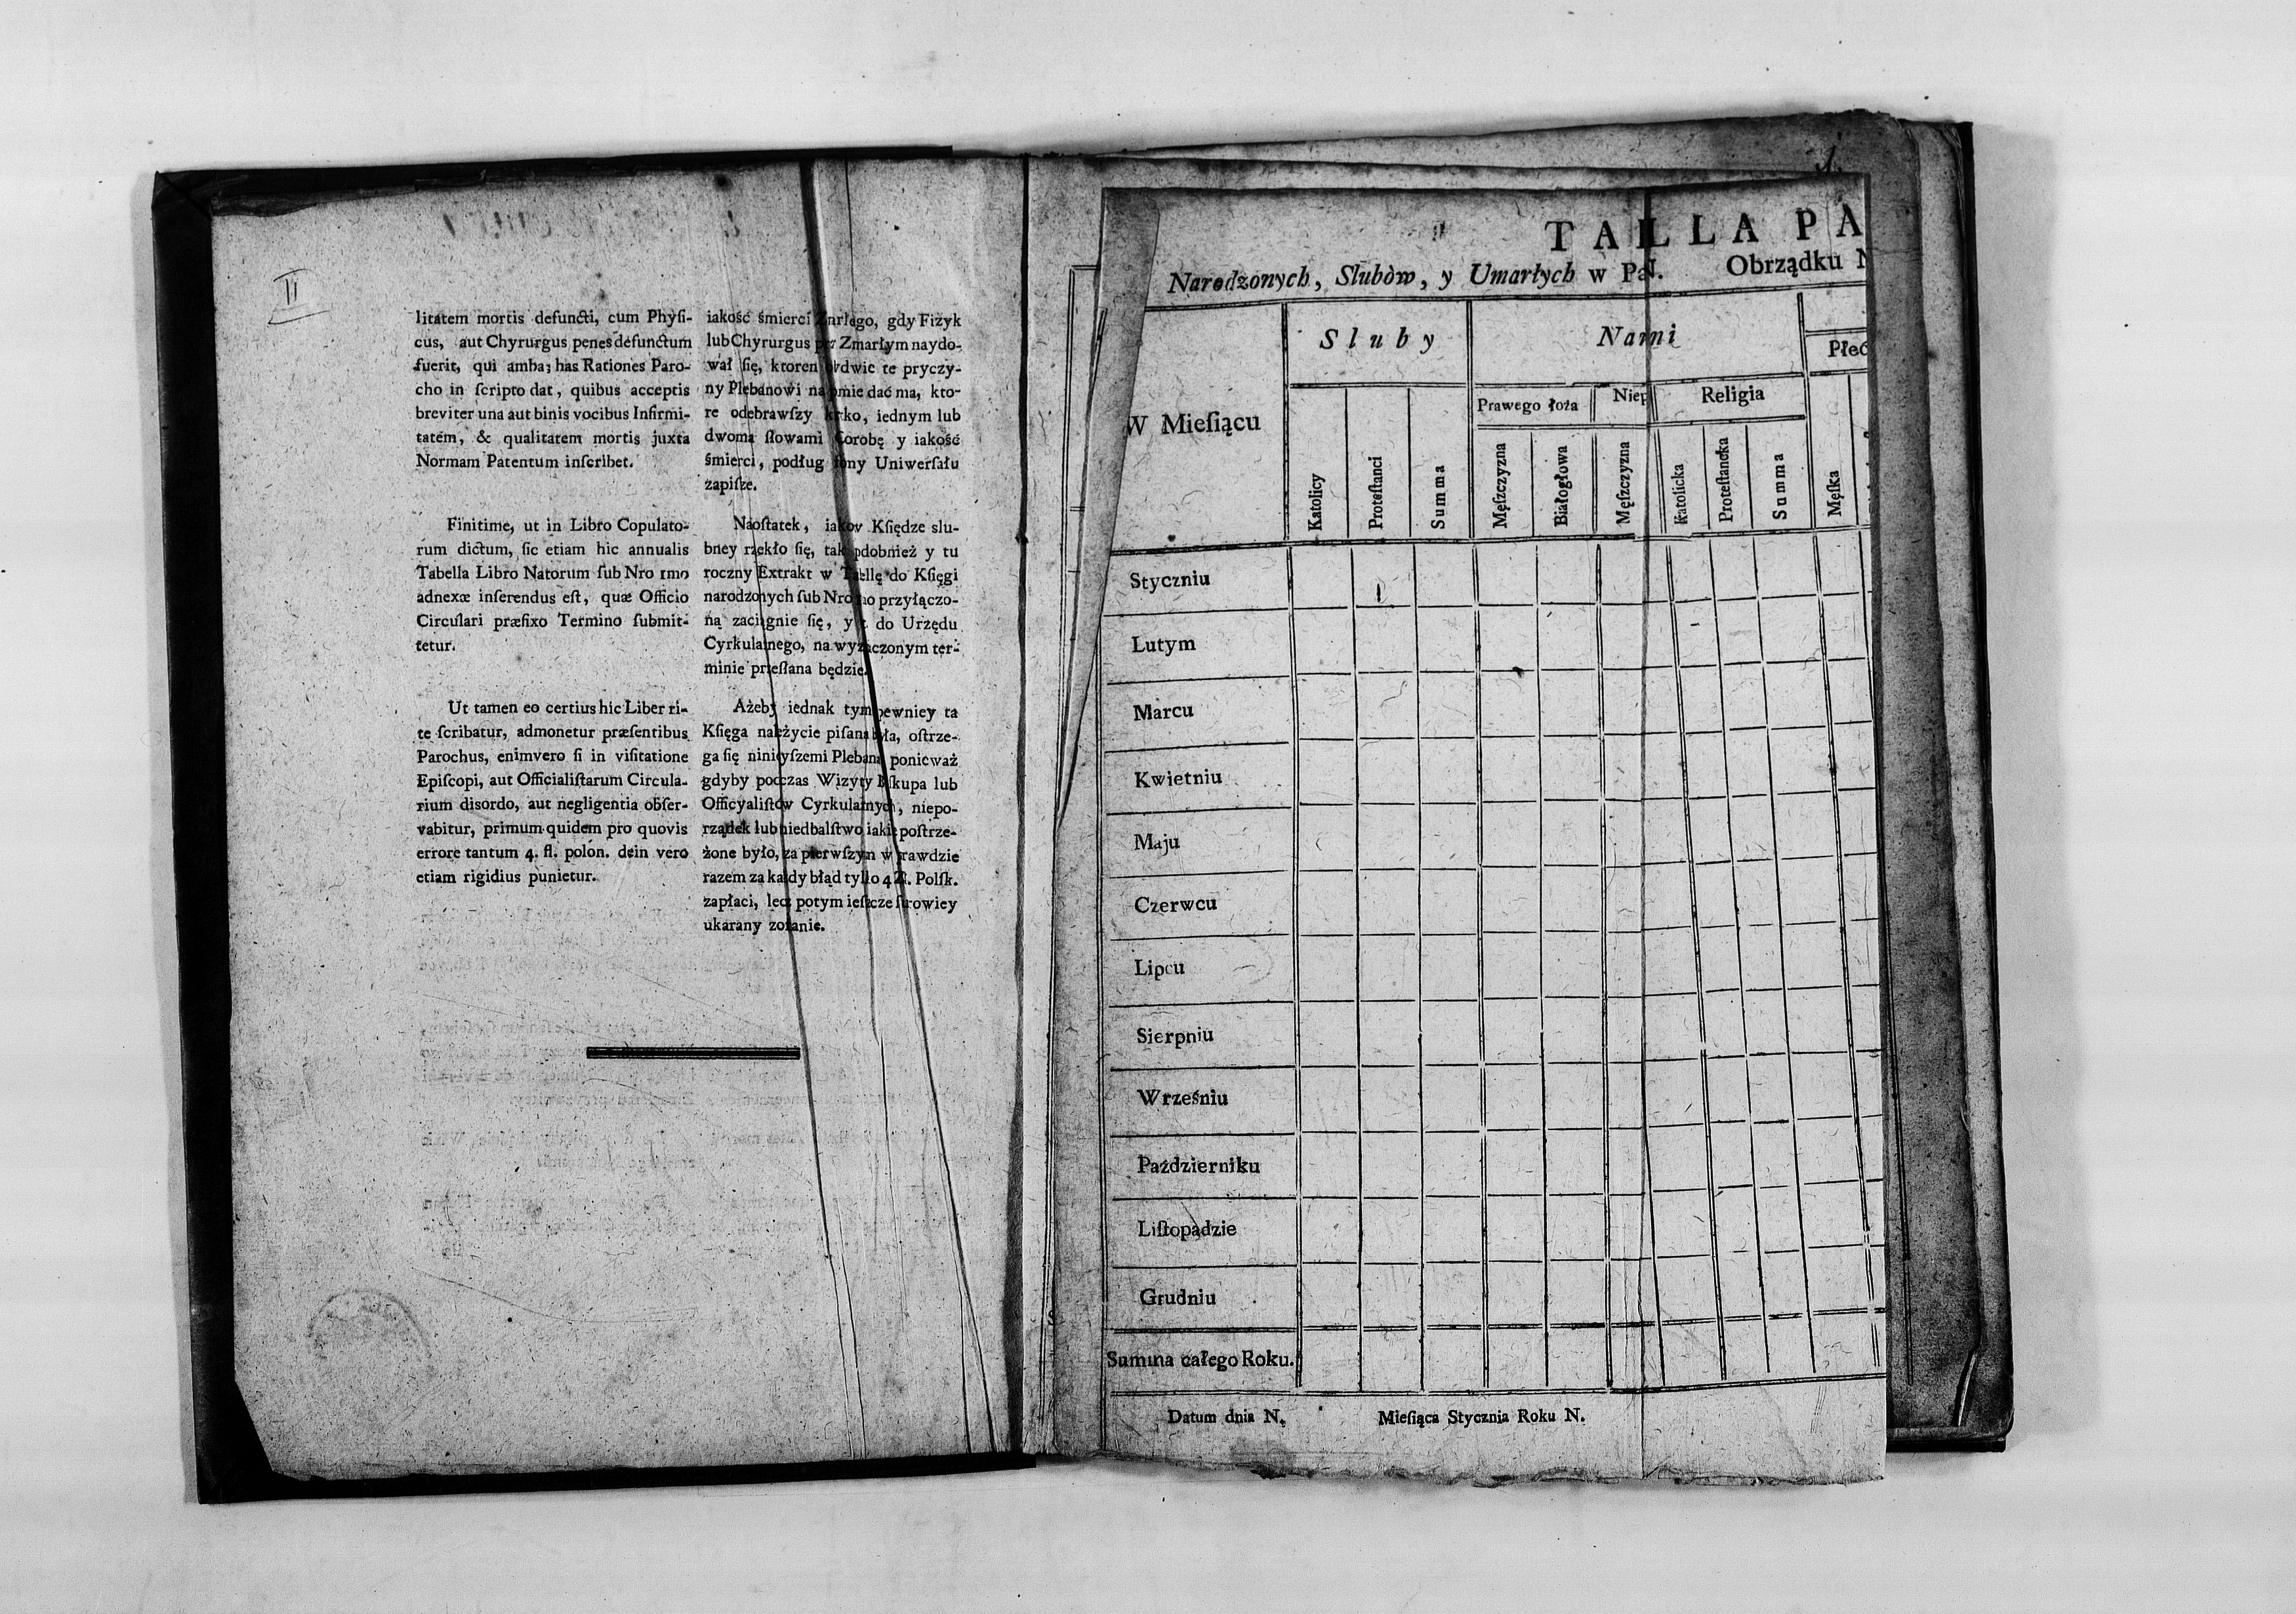 II
litatem mortis defuncti, cum Phyſi-
cus, aut Chyrurgus penes defunctum
fuerit, qui amba; has Rationes Paro-
cho in ſcripto dat, quibus acceptis
breviter una aut binis vocibus Infirmi-
tatem, & qualitatem mortis juxta
Normam Patentum inſcribet.
Finitime, ut in Libro Copulato-
rum dictum, ſic etiam hic annualis
Tabella Libro Natorum ſub Nro 1mo
adnexæ inſerendus eſt, quæ Officio
Circulari præfixo Termino ſubmit-
tetur.
Ut tamen eo certius hic Liber ri-
te ſcribatur, admonetur præſentibus
Parochus, enimvero ſi in viſitatione
Epiſcopi, aut Officialiſtarum Circula-
rium disordo, aut negligentia obſer-
vabitur, primum quidem pro quovis
errore tantum 4. fl. polon. dein vero
etiam rigidius punietur.
iakość śmierci go, gdy Fizyk
lub Chyrurgus Zmarłym naydo-
wał się, ktoren te pryczy-
ny Plebanowi dać ma, kto-
re odebrawſzy iednym lub
dwoma ſłowami y iakość
śmierci, podług Uniwerſału
zapiſze.
Naoſtatek, Kſiędze slu-
bney rzekło się, y tu
roczny Extrakt w do Kſięgi
narodzonych ſub przyłączo-
ną zaciągnie ſię, y do Urzędu
Cyrkularnego, na ter-
minie prieſłana będzie.
Ażeby iednak tym pewniey ta
Kſięga należycie piſana była, oſtrze-
ga ſię ninieyſzemi Plebana ponieważ
gdyby podczas Wizyty lub
Officyaliſtów Cyrkularnych, niepo-
rządek lub niedbalſtwo iakie poſtrze-
żone było, za pierwſzym wprawdzie
razem za każdy błąd tylko 4 Zł. Polſk.
zapłaci, lecz potym ieſzcze ſurowiey
ukarany zoſtanie.
1.
TA LLA PA
Narodzonych, Slubòw, y Umarłych w N. Obrządku N
W Mieſiącu
Sluby
Nami
Płeć
Prawego łoża
Niep
Religia
Katolicy
Proteſtanci
Summa
Męſzczyzna
Białogłowa
Męſzczyzna
Katolicka
Proteſtancka
Summa
Męſka
Styczniu
Lutym
Marcu
Kwietniu
Maju
Czerwcu
Lipcu
Sierpniu
Wrześniu
Październiku
Liſtopadzie
Grudniu
Summa całego Roku.
Datum dnia N. Mieſiąca Stycznia Roku N.